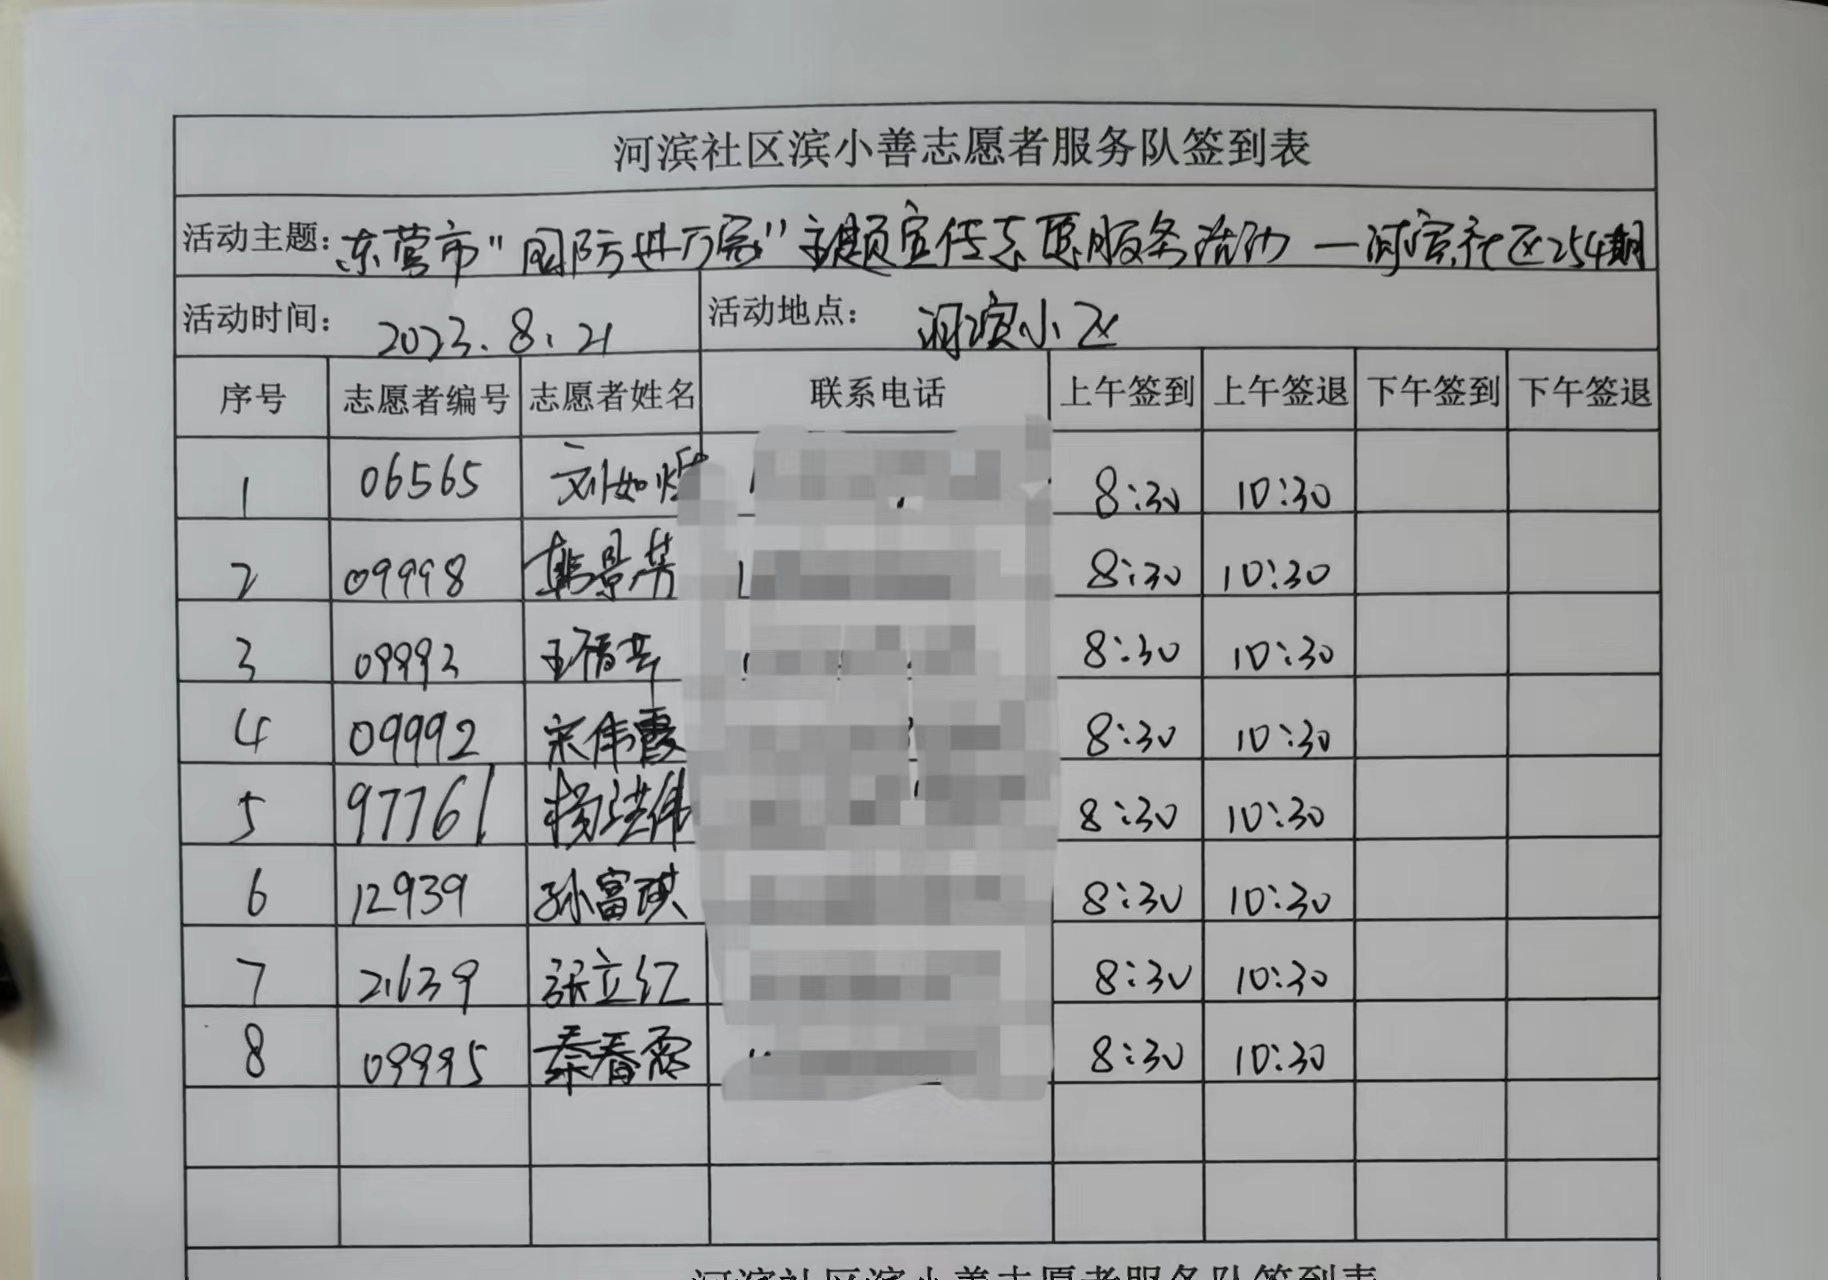 河滨社区滨小善志愿者服务队签到表
活动主题：东营市"国防进万家"主题宣传志愿服务活动—河滨社区254期
活动时间： 2023.8.21 活动地点： 河滨小区
序号 志愿者编号 志愿者姓名 联系电话 上午签到 上午签退 下午签到 下午签退
1 06565 刘如 8:30 10:30
2 09998 韩景芳 8:30 10:30
3 09993 王 8:30 10:30
4 09992 宋伟霞 8:30 10:30
5 97761 杨洪伟 8:30 10:30
6 12939 孙富琪 8:30 10:30
7 21639 张立红 8:30 10:30
8 09995 秦春霞 8:30 10:30
河滨社区滨小善志愿者服务队签到表